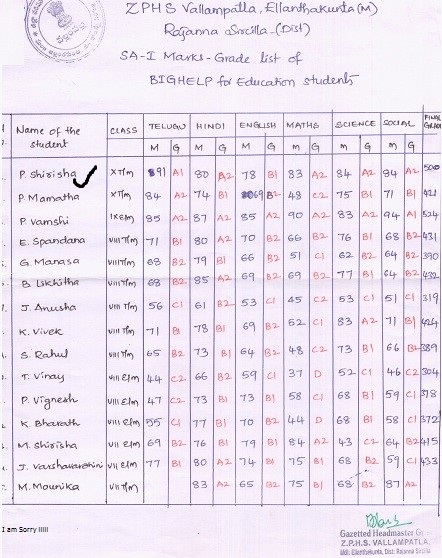 ZPHS Vallampatla, Ellanthakunta(M)
Rajanna Sircilla-(Dist)
SA-I Marks-Grade list of
BIGHELP for Education students
Name of the student CLASS TELUGU HINDI ENGLISH MATHS SCIENCE SOCIAL FINAL GRAD
M G M G M G M G M G M G
P. Shirisha X T/m 91 A1 80 A2 78 B1 83 A2 84 A2 84 A2 500
P. Mamatha X T/m 84 A2 74 B1 69 B2 48 C2 75 B1 71 B1 421
P. Vamshi IX E/m 85 A2 87 A2 85 A2 90 A2 83 A2 94 A1 524
E. Spandana VIII T/m 71 B1 80 A2 70 B2 66 B2 76 B1 68 B2 431
G. Manasa VIII T/m 68 B2 79 B1 66 B2 51 C1 62 B2 64 B2 390
B. Likhitha VIII T/m 68 B2 85 A2 69 B2 69 B2 77 B1 64 B2 432
J. Anusha VIII T/m 56 C1 61 B2 53 C1 45 C2 53 C1 51 C1 319
K. Vivek VIII T/m 71 B1 78 B1 69 B2 52 C1 83 A2 71 B1 424
S. Rahul VIII T/m 65 B2 73 B1 64 B2 48 C2 73 B1 66 B2 389
T. Vinay VIII E/m 44 C2 66 B2 59 C1 37 D 52 C1 46 C2 304
P. Vignesh VII E/m 47 C2 73 B1 73 B1 58 C1 68 B1 59 C1 378
K. Bharath VII E/m 55 C1 77 B1 70 B2 44 D 68 B1 58 C1 372
M. Shirisha VII E/m 69 B2 76 B1 79 B1 84 A2 43 C2 64 B2 415
J. Varshavardhini VII E/m 77 B1 80 A2 74 B1 75 B1 68 B2 59 C1 433
M. Mounika VII T/m 83 A2 65 B2 75 B1 68 B2 87 A2
I am Sorry
Gazetted Headmaster
Z.P.H.S. VALLAMPATLA,
Mdl: Ellanthakunta, Dist: Rajanna Sircilla